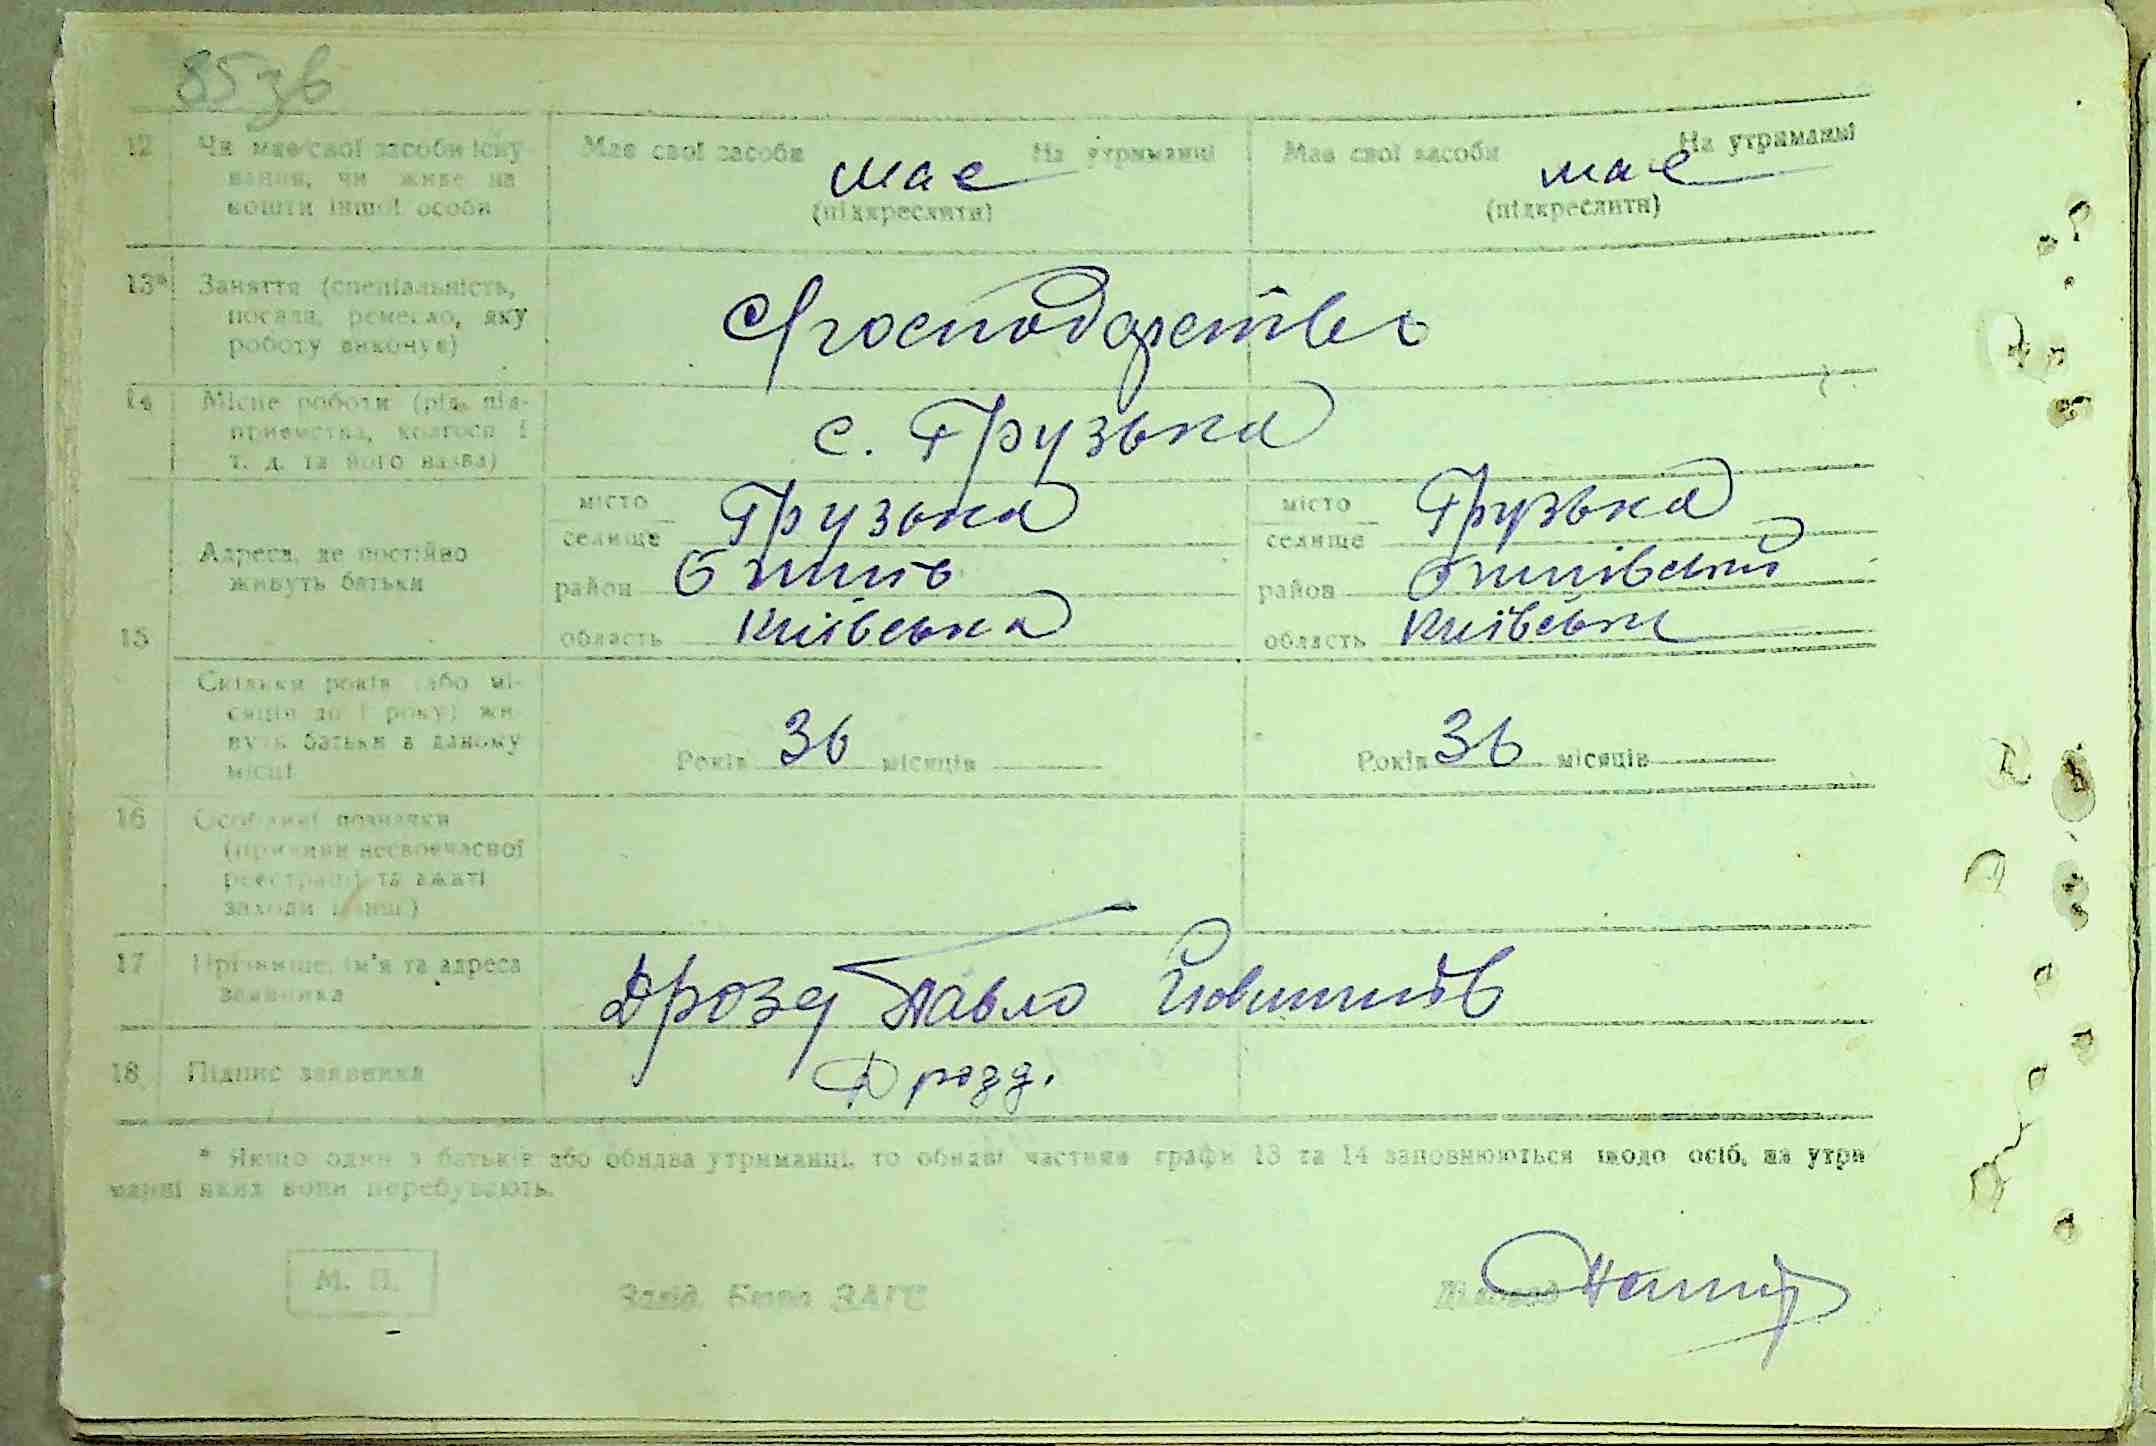 85зв
12 Чи має свої засоби існу-
вання, чи живе на
кошти іншої особи
Має свої засоби На утриманні
має
(підкреслити)
Має свої засоби На утриманні
має
(підкреслити)
13* Заняття (спеціальність,
посада, ремесло, яку
роботу виконує)
С/господарство
14 Місце роботи (рід. під-
приємства, колгосп і
т. д. та його назва)
с. Грузька
15 Адреса, де постійно
живуть батьки
місто
селище Грузька
район
область Київська
місто
селище Грузька
район
область Київська
Скільки років (або мі-
сяців до 1 року) жи-
вуть батьки в даному
місці
Років 36 місяців
Років 36 місяців
16 Особливі позначки
(причини несвоєчасної
реєстрації та вжиті
заходи і інш.)
17 Прізвище, ім'я та адреса
заявника
Дрозд Павло
18 Підпис заявника
Дрозд.
* Якщо один з батьків або обидва утриманці, то обидві частини графи 13 та 14 заповнюються щодо осіб, на утри
манні яких вони перебувають.
М. П.
Завід. Бюро ЗАГС
Діловод